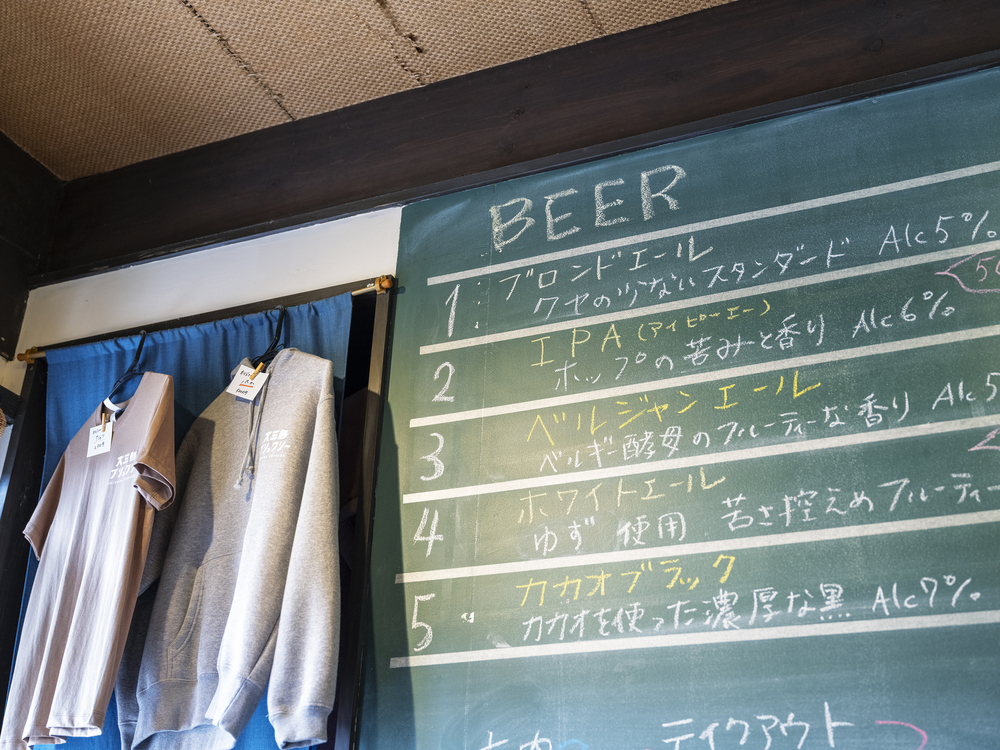 BEER
1: ブロンドエール
クセの少ないスタンダード Alc5%
2 IPA (アイピーエー)
ホップの苦みと香り Alc6%
3 ベルジャンエール
ベルギー酵母のフルーティーな香り Alc5
4 ホワイトエール
ゆず使用 苦さ控えめフルーティー
5 カカオブラック
カカオを使った濃厚な黒 Alc7%
テイクアウト
大三島
ブリュワリー